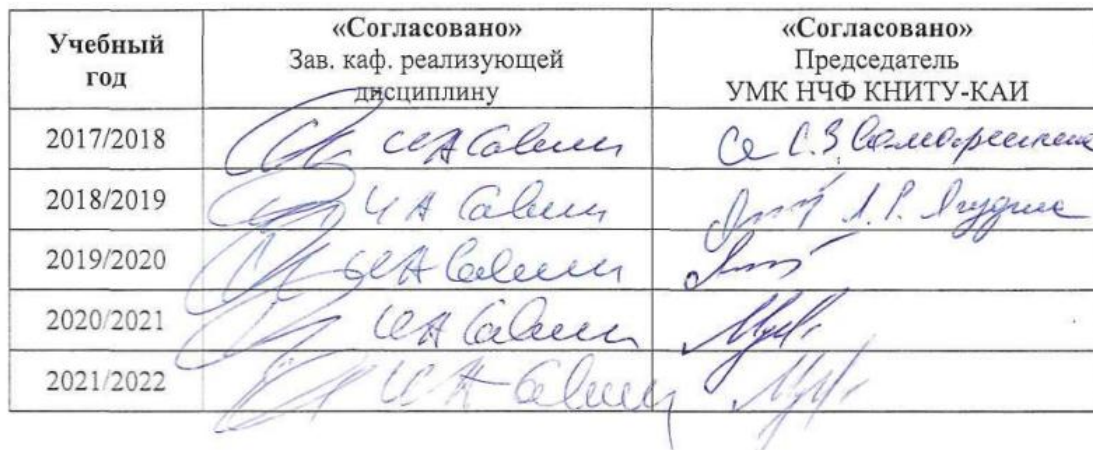 Учебный год
«Согласовано»
Зав. каф. реализующей
дисциплину
«Согласовано»
Председатель
УМК НЧФ КНИТУ-КАИ
2017/2018 И А Савин С.З
2018/2019 И А Савин Л.Р. Ягудина
2019/2020 И А Савин
2020/2021 И А Савин
2021/2022 И А Савин